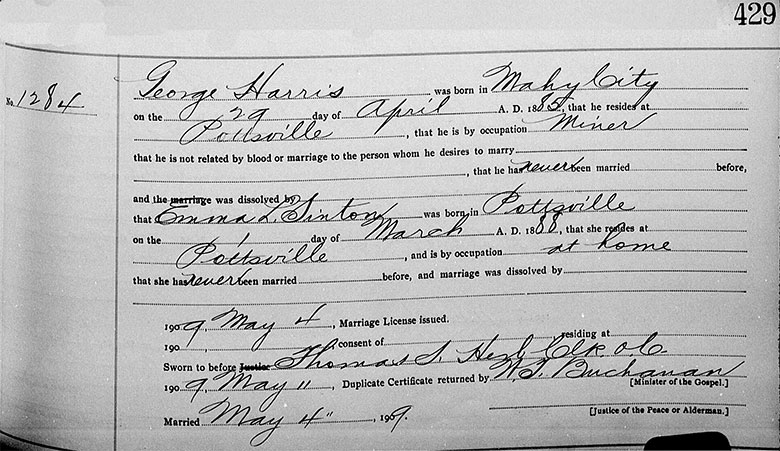 429
No. 1284
George Harris was born in Mahy City
on the 29 day of April A. D. 1885, that he resides at
Pottsville, that he is by occupation Miner
that he is not related by blood or marriage to the person whom he desires to marry
, that he has never been married before,
and the marriage was dissolved by
that Emma L. Sinton was born in Pottsville
on the 1 day of March A. D. 18, that she resides at
Pottsville, and is by occupation at home
that she has never been married before, and marriage was dissolved by
1909, May 4, Marriage License issued.
190 , consent of residing at
Sworn to before Justice Thomas S. Clk. O. C.
1909, May 11, Duplicate Certificate returned by W. S. Buchanan
[Minister of the Gospel.]
Married May 4", 1909.
[Justice of the Peace or Alderman.]